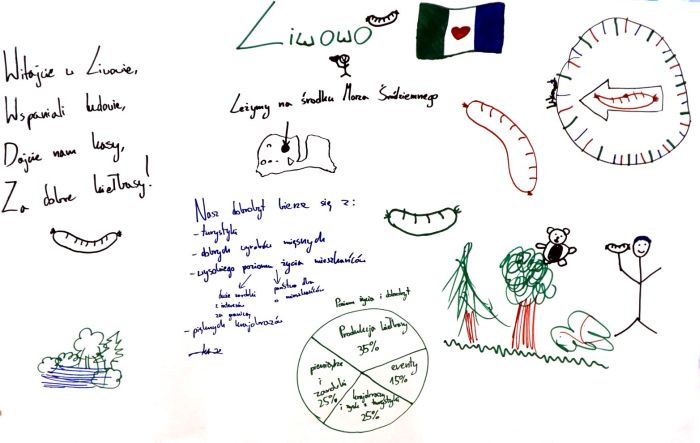 Liwowo
Witajcie w Liwowie,
Wspaniali ludowie,
Dajcie nam kasy,
Za dobre kiełbasy!
Leżymy na środku Morza Śródziemnego
Nasz dobrobyt bierze się z:
- turystyki
- dobrych wyrobów mięsnych
- wysokiego poziomu życia mieszkańców
duże zarobki
z interesów
za granicą
państwo dba
o mieszkańców
- pięknych krajobrazów
Poziom życia i dobrobyt
Produkcja kiełbasy
35%
eventy
15%
krajobrazy
i zyski z turystyki
25%
pieniądze
i
zarobki
25%